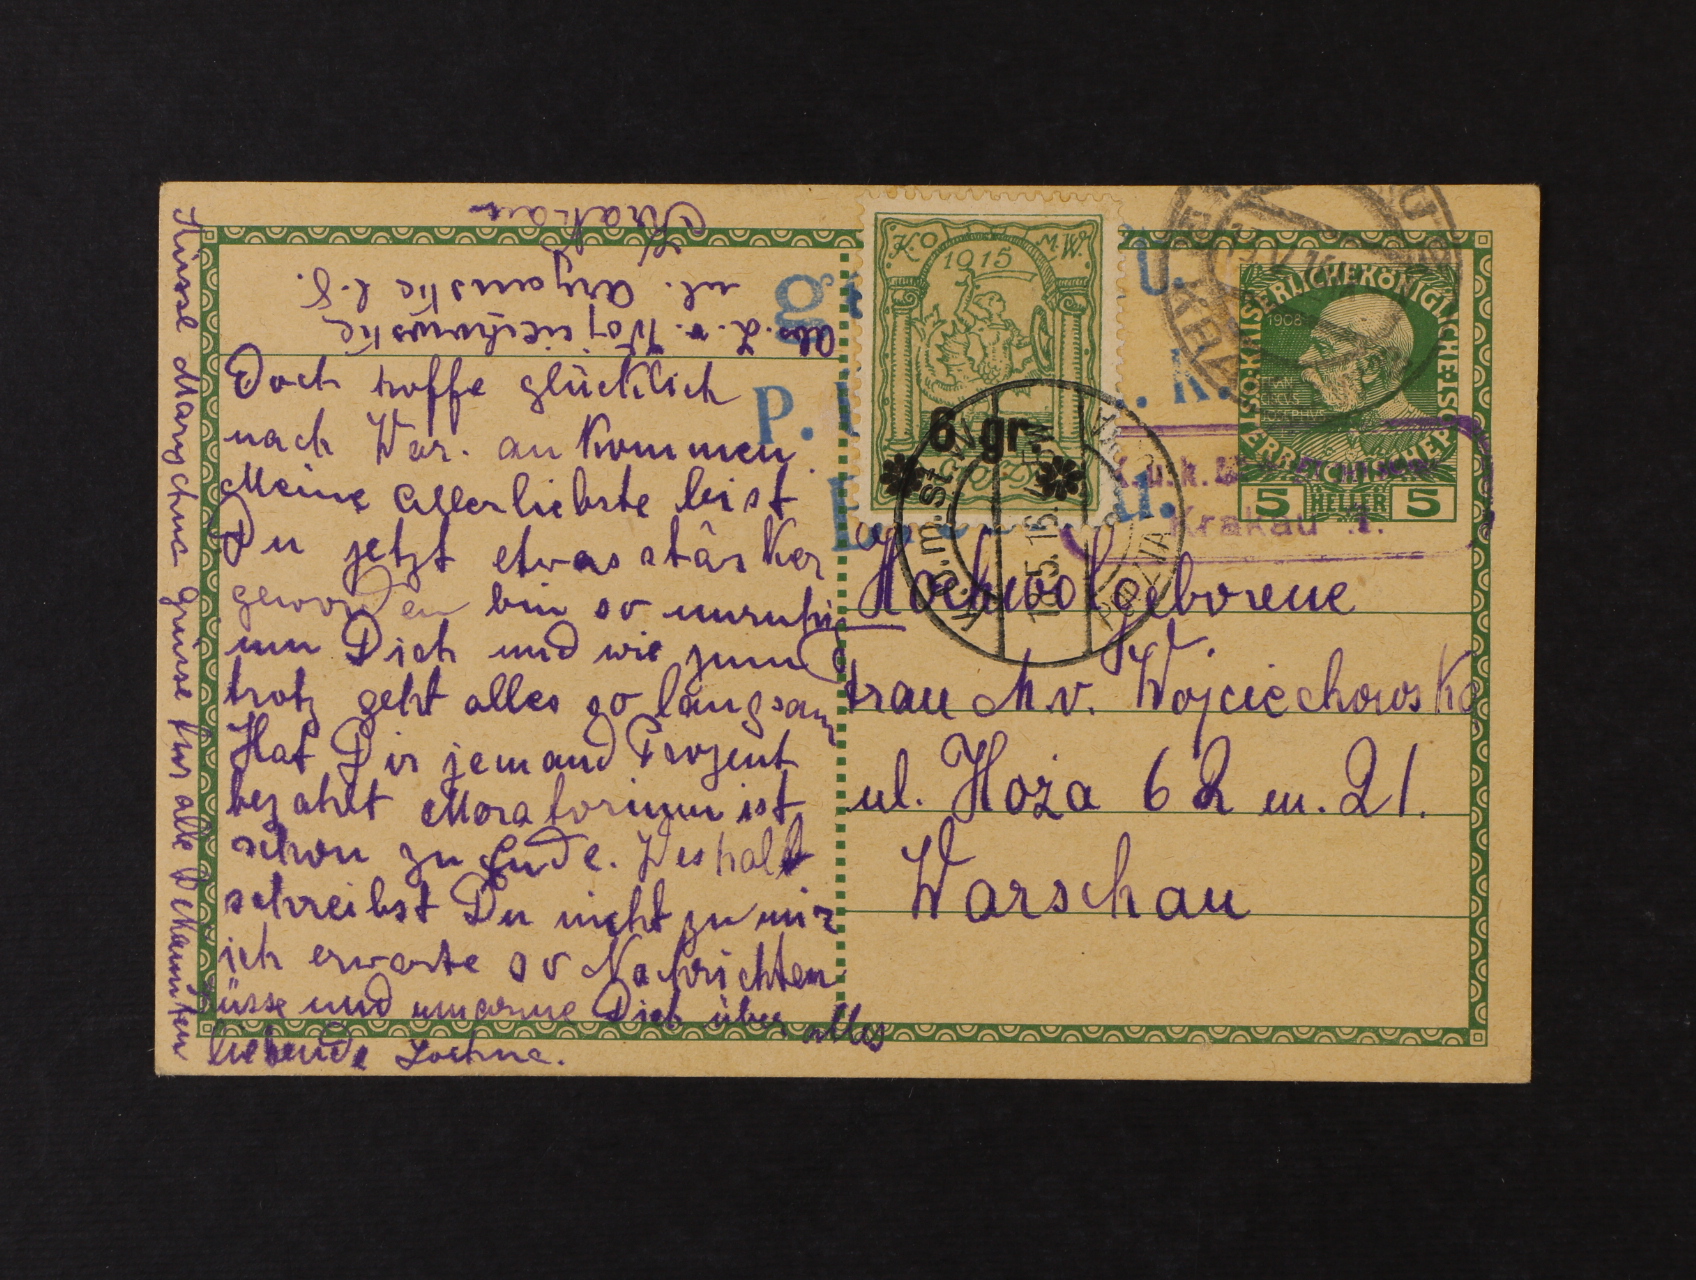 Krakau
ul. Aryanska l. 8.
Abs. L. v. Wojciechowska
Doch hoffe glücklich
nach War. ankommen.
Meine Allerliebste bist
Du jetzt etwas stärker
geworden bin so unruhig
um Dich und wie zum
trotz geht alles so langsam
Hat Dir jemand Prozent
bezahlt Moratorium ist
schon zu Ende. Weshalb
schreibst Du nicht zu mir
ich erwarte so Nachrichten
Küsse und umarme Dich über alles
liebende
Küsse Marychna grüsse für alle Bekannten
K O M. W.
1915
6 gr.
K.u.k.
Krakau 1.
KAISERLICHE KÖNIGLICHE
ÖSTERREICHISCHE POST
1908
5 HELLER 5
Hochwolgeborene
Frau M. v. Wojciechowska
ul. Hoża 62 m. 21.
Warschau